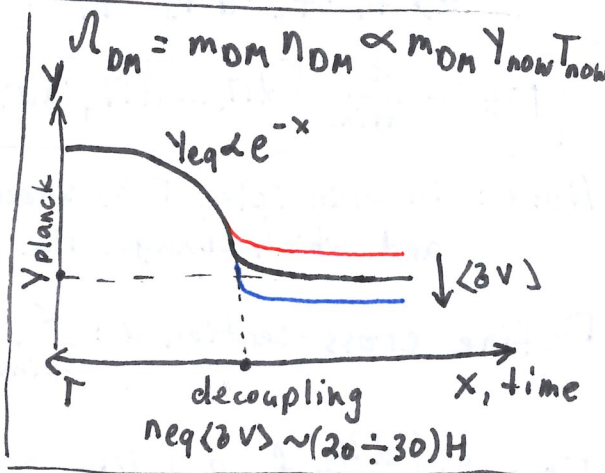 Ω_DM = m_DM n_DM ∝ m_DM Y_now T_now
Y
Y_eq ∝ e^-x
Y_planck
↓⟨σv⟩
T
decoupling
x, time
n_eq⟨σv⟩ ~ (20÷30)H